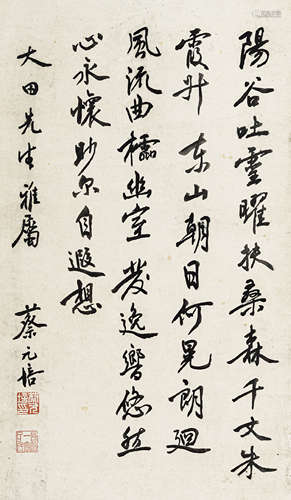 陽谷吐靈曜扶桑森千丈朱
霞升東山朝日何晃朗迴
風流曲櫺幽室發逸響悠然
心永懷眇尔自遐想
大田先生雅屬
蔡元培